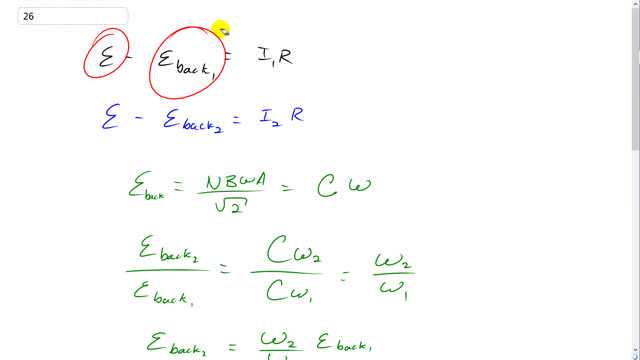 26
ε - ε back₁ = I₁R
ε - ε back₂ = I₂ R
ε back = NBωA / √2 = C ω
ε back₂ / ε back₁ = Cω₂ / Cω₁ = ω₂ / ω₁
ε back₂ = ω₂ / ε back₁